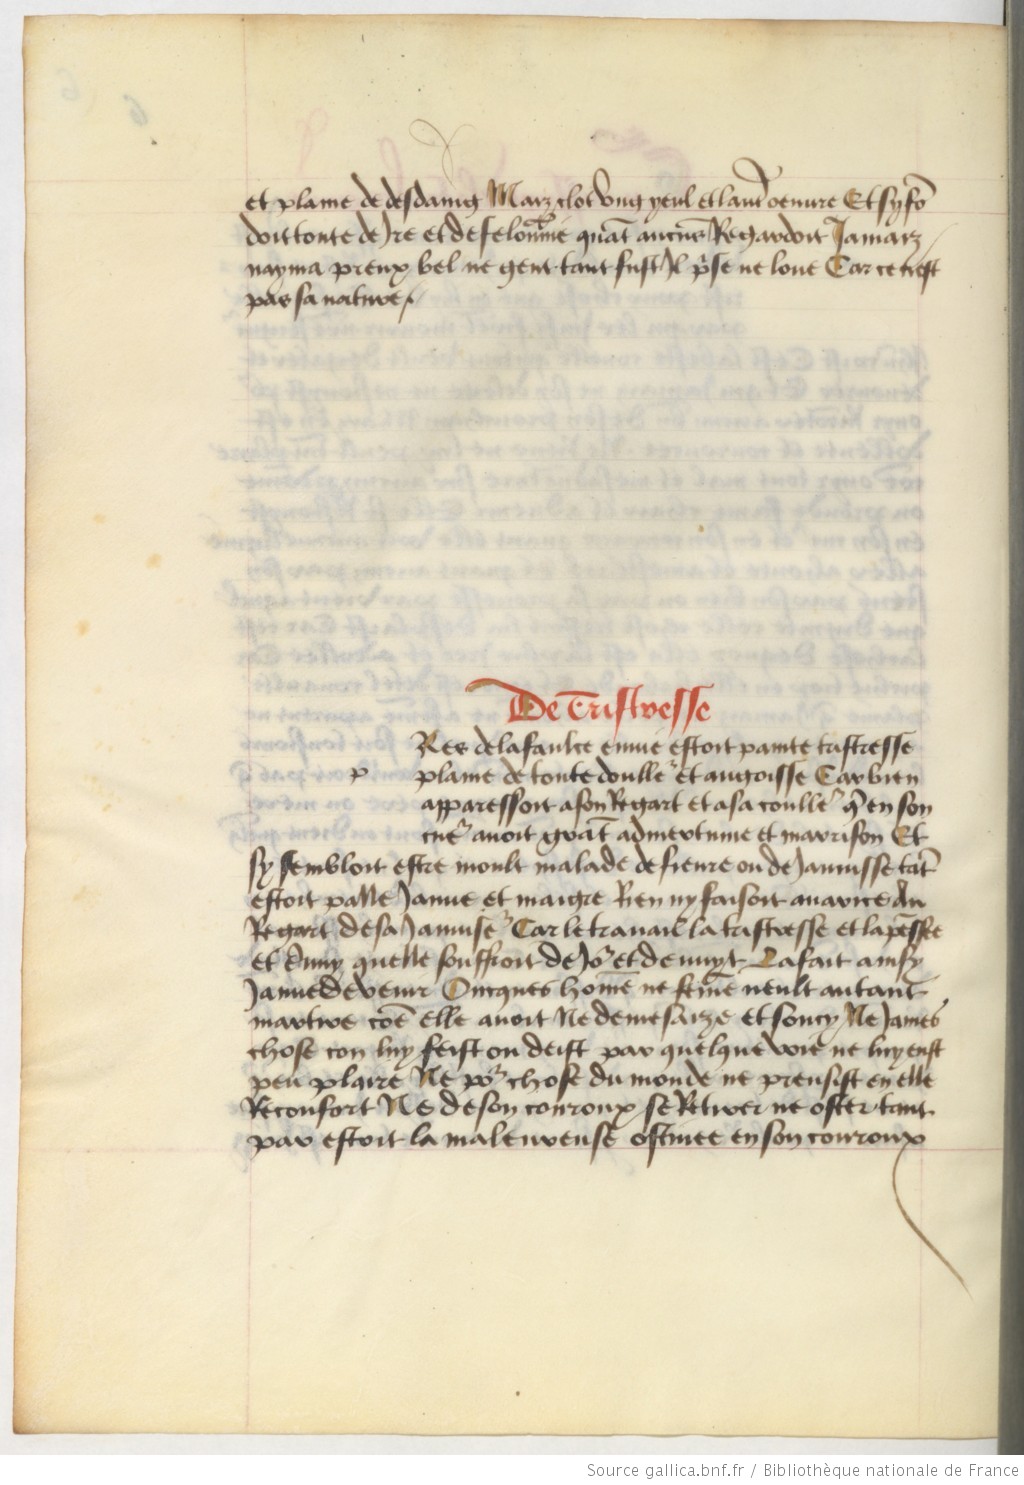 et plame de desdaing Marz clot ung yeul et laut̃ oeuure Et sy fõ
doit toute de Jre et de felonnie quãt aucũs Regardoit Jamarz
nayma preux bel ne gent tant fust Jl p̃se ne loue Car ce nest
par sa nature
De Tristresse
Res de la faulce enuie estoit painte tristresse
p
plame de toute doulle᷑ et angoisse Car bien
apparessoit a son Regart et a sa coulle᷑ q̃ en son
cue᷑ auoit grãt et marrison Et
sy sembloit estre moult malade de fieure ou de Jaunisse tãt
estoit palle Janue et maigre Rien ny faisoit auarice Au
Regart de sa Jaunise᷑ Car le trauail la tristresse et la pẽssee
et quelle souffroit de Jo᷑ et de nuyt La fait ainsy
Janue deuenir Oncques hom̃e ne fem̃e neult autant
martire cõe elle auoit Ne de et soucy Ne James
chose con luy feist ou deist par quelque voie ne luy eust
peu plaire Ne po᷑ chose du monde ne prensist en elle
Reconfort Ne de son couroux se Retirer ne oster tant
par estoit la maleureuse ostinee en son couroux
Source gallica.bnf.fr / Bibliothèque nationale de France